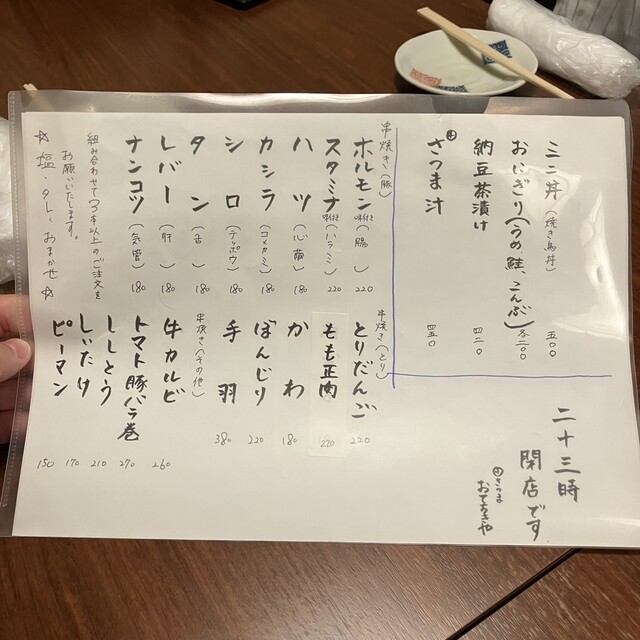 ミニ丼(焼き鳥丼) 五〇〇
おにぎり(うめ 鮭 こんぶ) 各二〇〇
納豆茶漬け 四二〇
さつま汁 四五〇
二十三時
閉店です
さつま
おてちきや
串焼き(豚)
ホルモン 味付き (腸) 220
スタミナ 味付き (ハラミ) 220
ハツ (心臓) 180
カシラ (コメカミ) 180
シロ (テッポウ) 180
タン (舌) 180
レバー (肝) 180
ナンコツ (気管) 180
組み合わせて3本以上のご注文を
お願いいたします。
☆塩・タレ・おまかせ☆
串焼き(とり)
とりだんご 220
もも正肉 220
かわ 180
ぼんじり 220
手羽 380
串焼き(その他)
牛カルビ 260
トマト豚バラ巻 270
ししとう 210
しいたけ 170
ピーマン 150